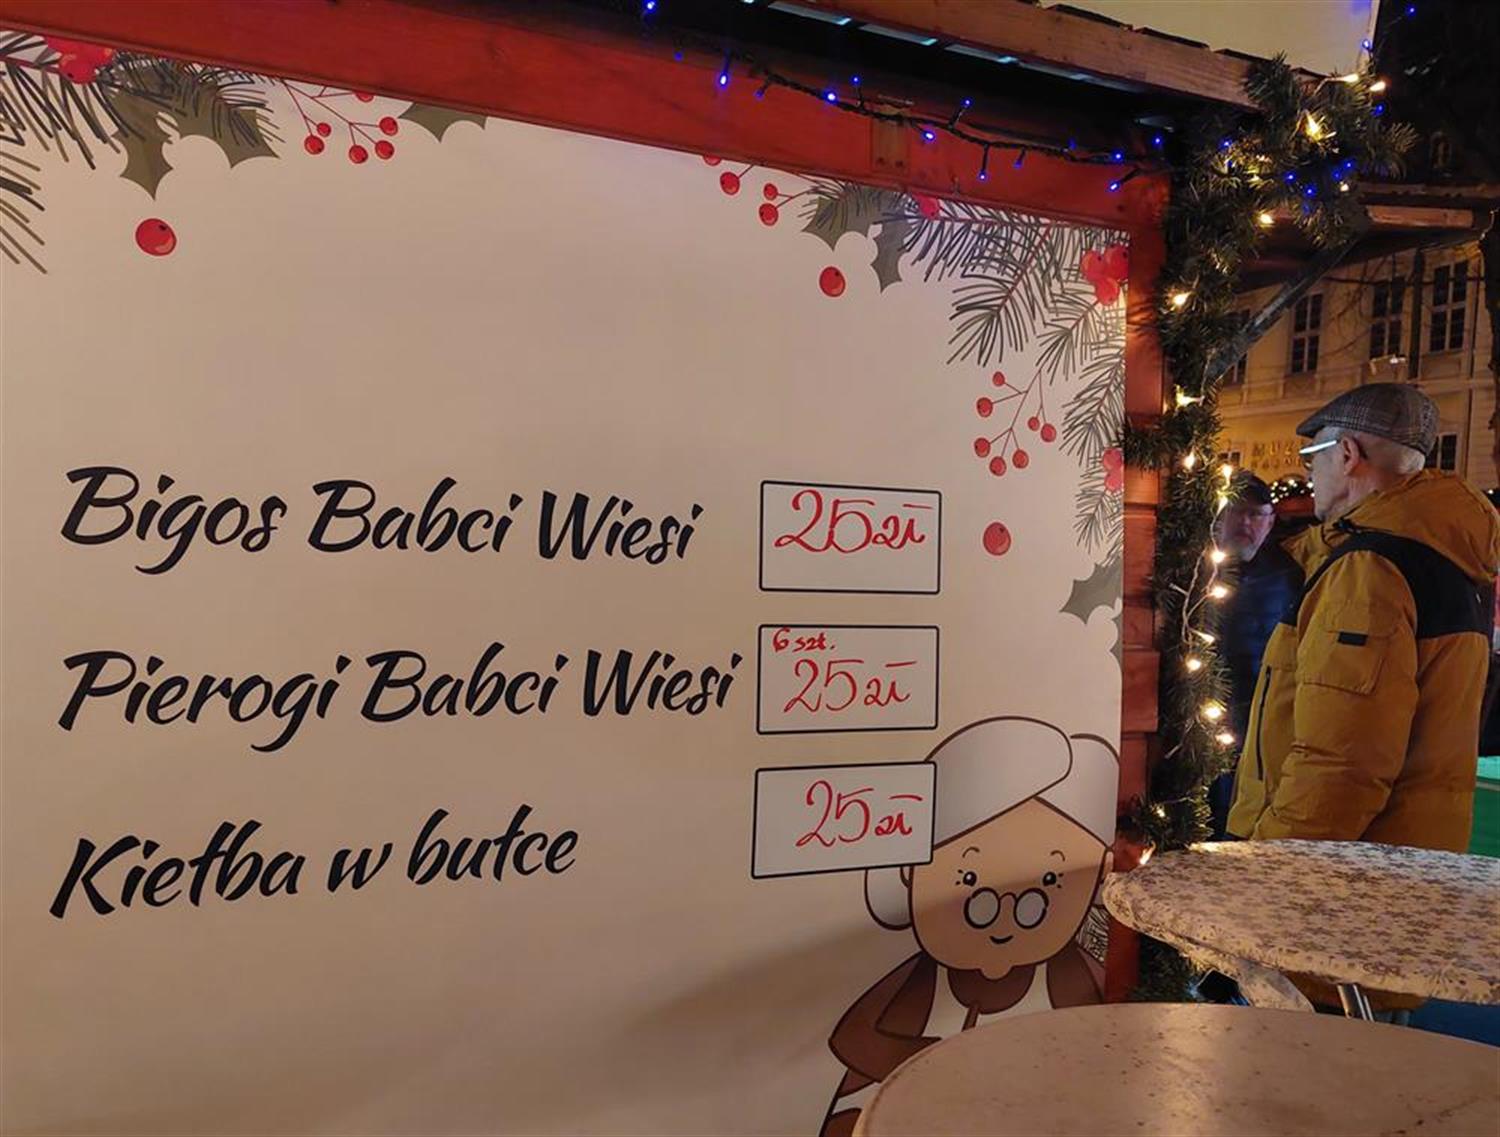 Bigos Babci Wiesi 25 zł
6 szt.
Pierogi Babci Wiesi 25 zł
Kiełba w bułce 25 zł